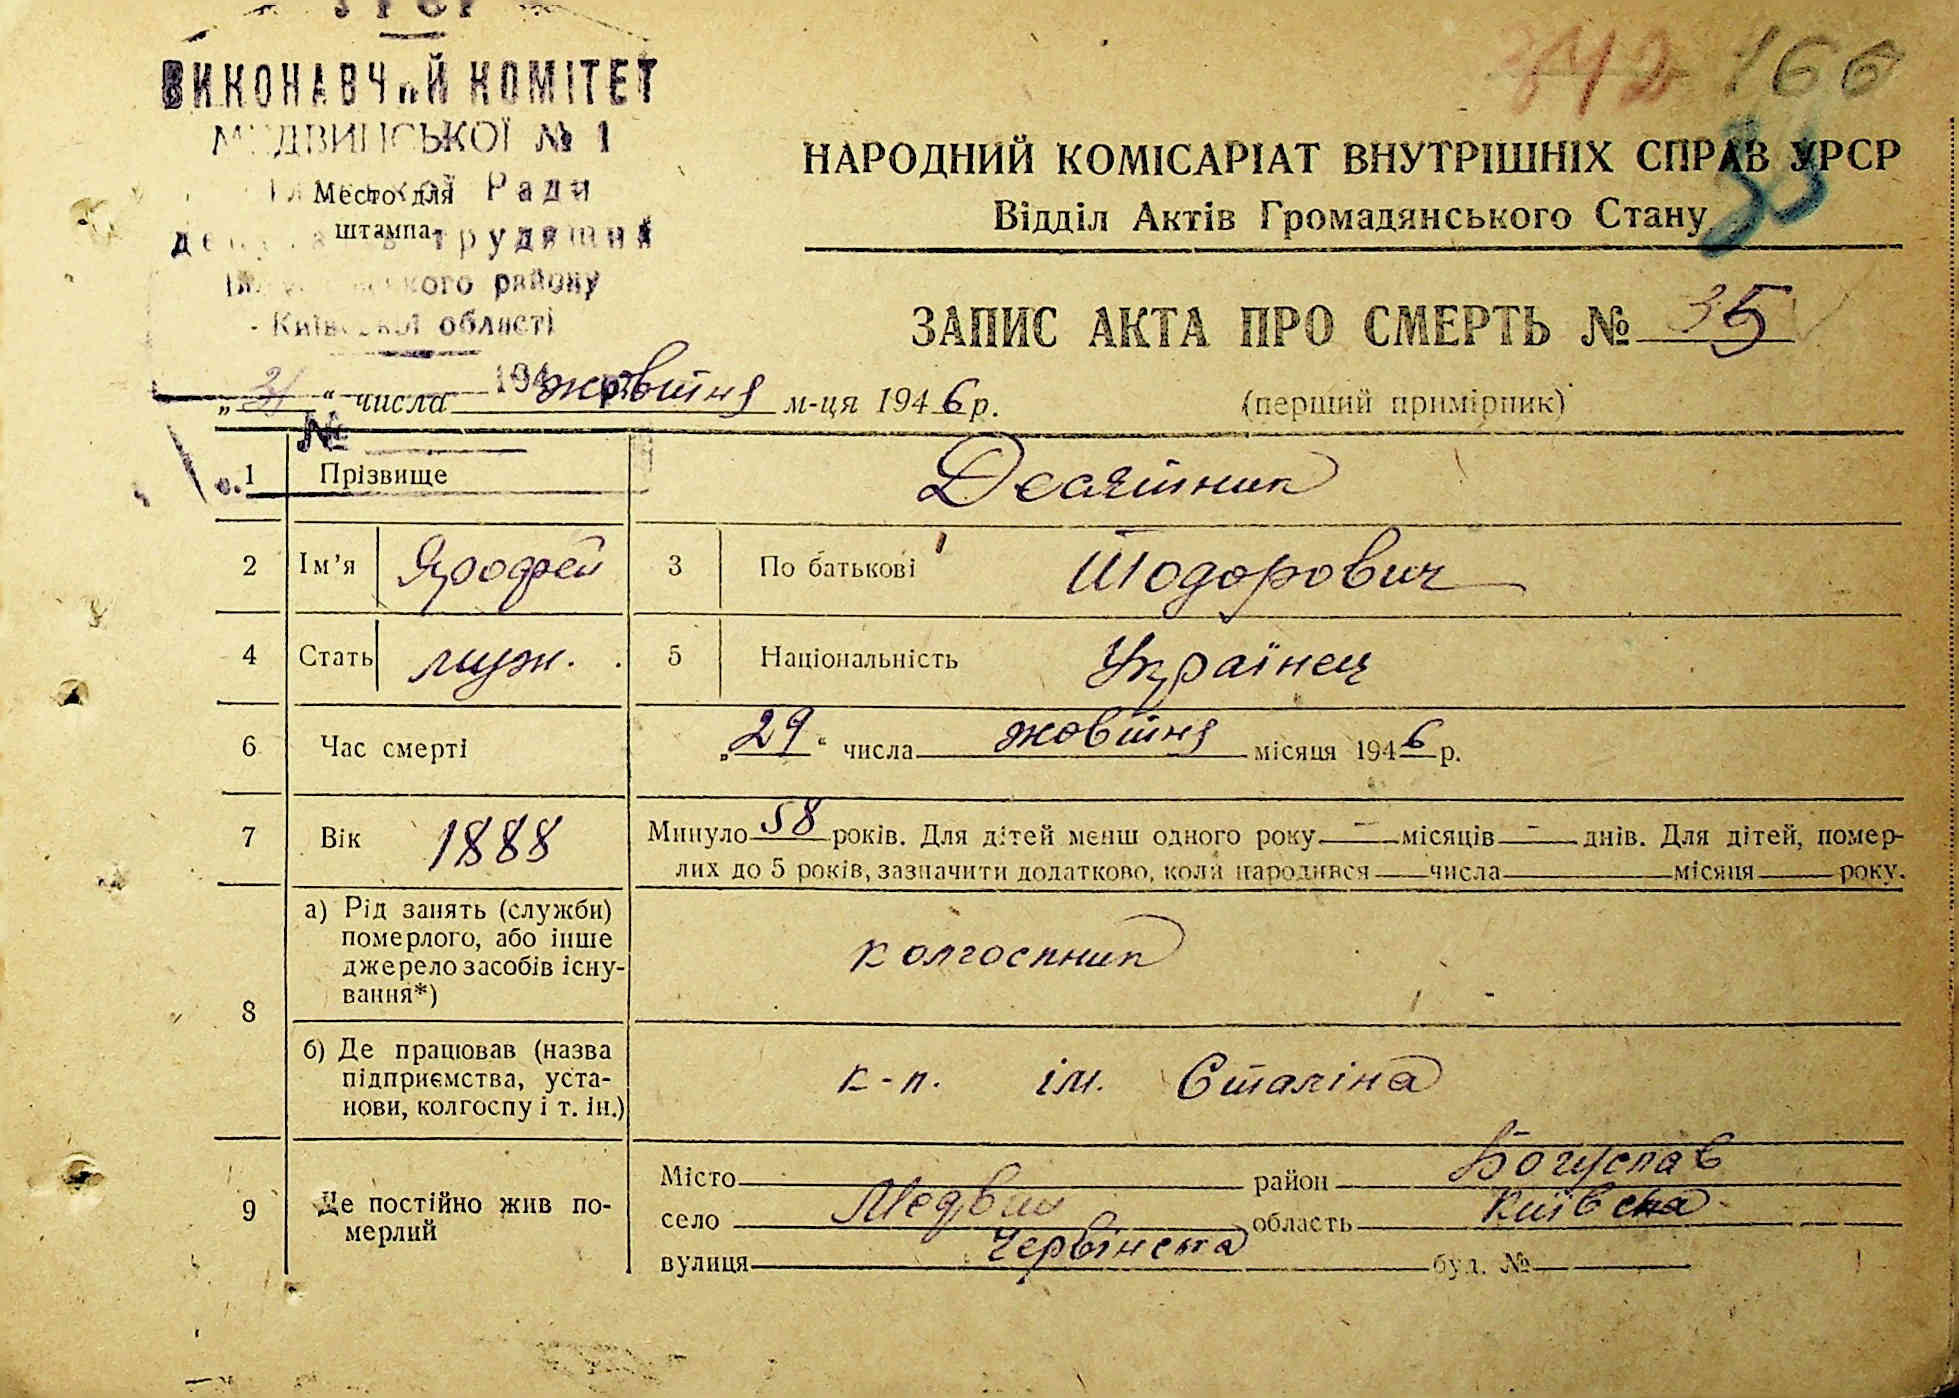 УРСР
ВИКОНАВЧИЙ КОМІТЕТ
МЕДВИНСЬКОЇ № 1
Ради
Место для
штампа
депутатів трудящих
ського району
Київської області
194 р.
№
342 166
33
НАРОДНИЙ КОМІСАРІАТ ВНУТРІШНІХ СПРАВ УРСР
Відділ Актів Громадянського Стану
ЗАПИС АКТА ПРО СМЕРТЬ № 35
„31“ числа жовтня м-ця 1946 р.
(перший примірник)
1 Прізвище Десятник
2 Ім'я Ярофей 3 По батькові Тодорович
4 Стать муж. 5 Національність Українец
6 Час смерті „29“ числа жовтня місяця 1946 р.
7 Вік 1888 Минуло 58 років. Для дітей менш одного року — місяців — днів. Для дітей, помер-
лих до 5 років, зазначити додатково, коли народився числа місяця року.
8 а) Рід занять (служби)
померлого, або інше
джерело засобів існу-
вання*)
колгоспник
б) Де працював (назва
підприємства, уста-
нови, колгоспу і т. ін.)
к-п. ім. Сталіна
9 Де постійно жив по-
мерлий
Місто район Богуслав
село Медвин область Київска
вулиця Червінська буд. №